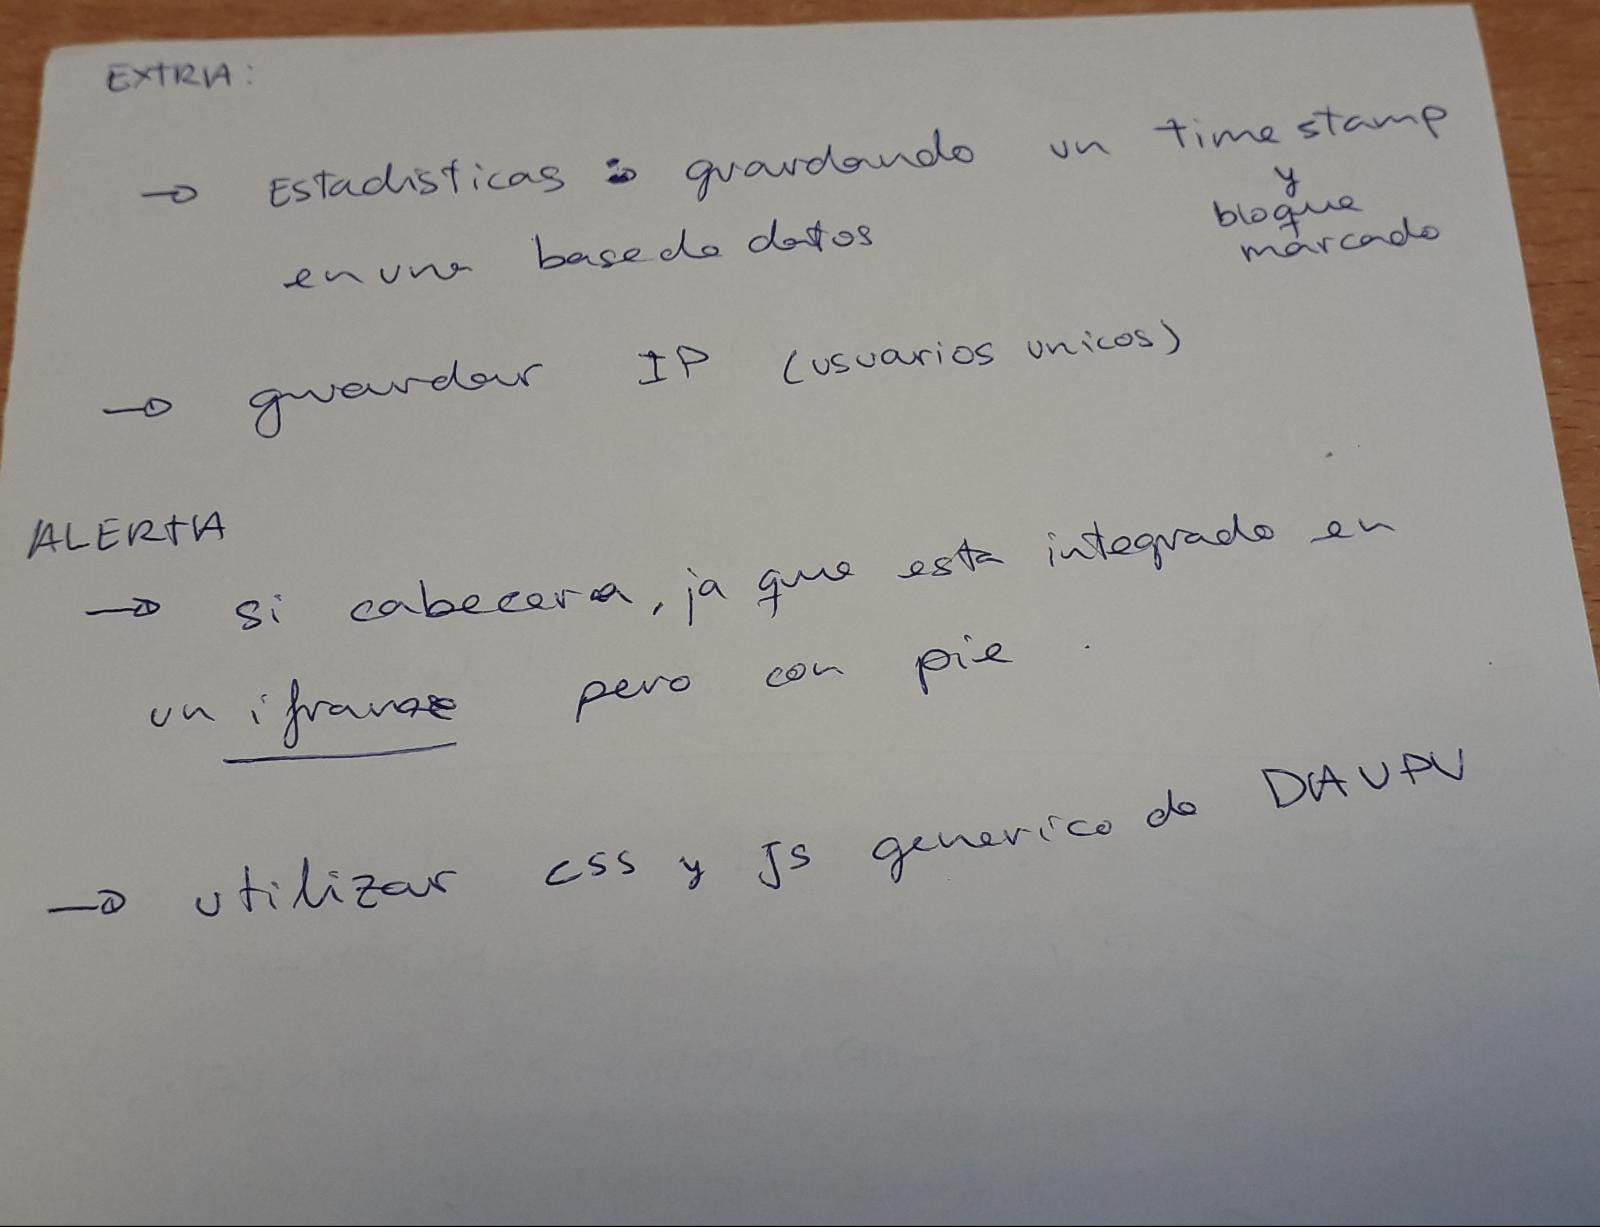 EXTRA:
→ Estadisticas : guardando un timestamp
y
bloque
marcado
en una base de datos
→ guardar IP (usuarios unicos)
ALERTA
→ si cabecera, ja que esta integrado en
un iframe pero con pie
→ utilizar css y Js generico de DAUPV